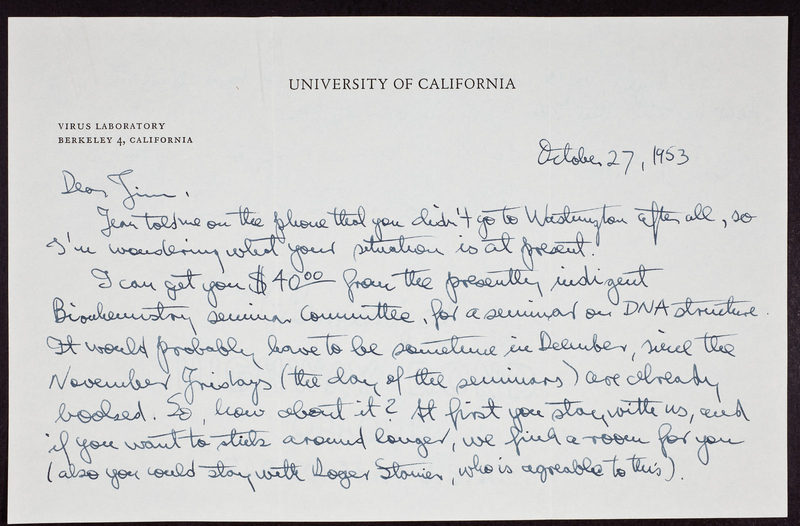 UNIVERSITY OF CALIFORNIA
VIRUS LABORATORY
BERKELEY 4, CALIFORNIA
October 27, 1953
Dear Jim,
told me on the phone that you didn't go to Washington after all, so
I'm wondering what your situation is at present.
I can get you $40.00 from the presently indigent
Biochemistry seminar committee, for a seminar on DNA structure.
It would probably have to be sometime in December, since the
November Fridays (the day of the seminars) are already
booked. So, how about it? At first you stay with us, and
if you want to stick around longer, we find a room for you
(also you could stay with Roger Stanier, who is agreable to this).